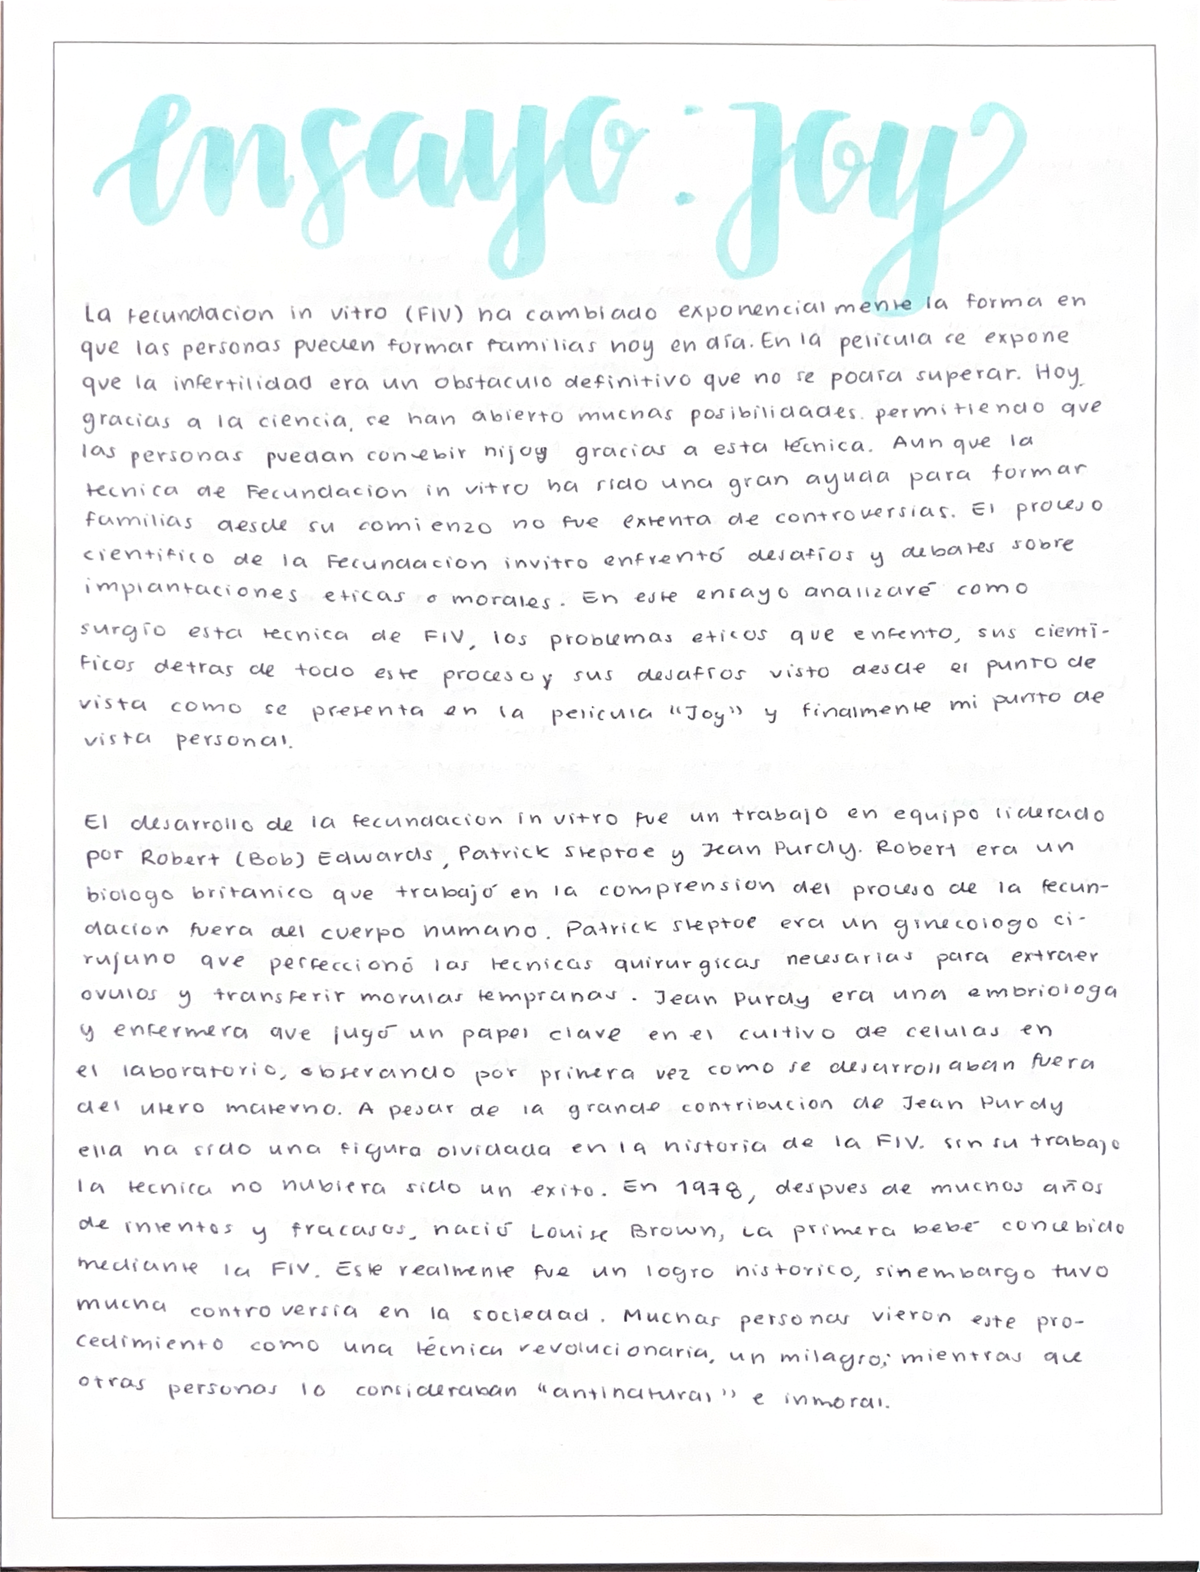 ensayo: Joy
La fecundacion in vitro (FIV) ha cambiado exponencialmente la forma en
que las personas pueden formar familias hoy en día. En la pelicula se expone
que la infertilidad era un obstaculo definitivo que no se podía superar. Hoy,
gracias a la ciencia, se han abierto muchas posibilidades. permitiendo que
las personas puedan conebir hijoy gracias a esta técnica. Aun que la
tecnica de Fecundacion in vitro ha sido una gran ayuda para formar
familias desde su comienzo no fue extenta de controversias. El proceso
cientifico de la Fecundacion invitro enfrentó desafíos y debates sobre
implantaciones eticas o morales. En este ensayo analizaré como
surgio esta tecnica de FIV, los problemas eticos que enfento, sus cientí-
ficos detras de todo este proceso y sus desafíos visto desde el punto de
vista como se presenta en la pelicula "Joy" y finalmente mi punto de
vista personal.
El desarrollo de la fecundacion in vitro fue un trabajo en equipo liderado
por Robert (Bob) Edwards, Patrick Steptoe y Jean Purdy. Robert era un
biologo britanico que trabajó en la comprension del proceso de la fecun-
dacion fuera del cuerpo humano. Patrick Steptoe era un ginecologo ci-
rujano que perfeccionó las tecnicas quirurgicas necesarias para extraer
ovulos y transferir morulas tempranas. Jean Purdy era una embriologa
y enfermera que jugó un papel clave en el cultivo de celulas en
el laboratorio, obserando por primera vez como se desarrollaban fuera
del utero materno. A pesar de la grande contribucion de Jean Purdy
ella ha sido una figura olvidada en la historia de la FIV. sin su trabajo
la tecnica no hubiera sido un exito. En 1978, despues de muchos años
de intentos y fracasos, nació Louise Brown, La primera bebé concebido
mediante la FIV. Este realmente fue un logro historico, sinembargo tuvo
mucha controversia en la sociedad. Muchas personas vieron este pro-
cedimiento como una técnica revolucionaria, un milagro; mientras que
otras personas lo consideraban "antinatural" e inmoral.